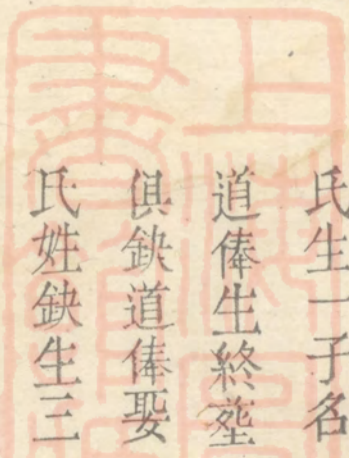 氏生一子名
道俸生終塟
俱缺道俸娶
氏姓缺生三